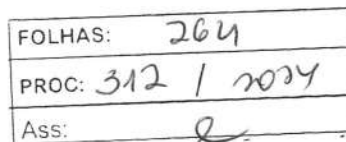 FOLHAS: 264
PROC: 312 / 2024
Ass: